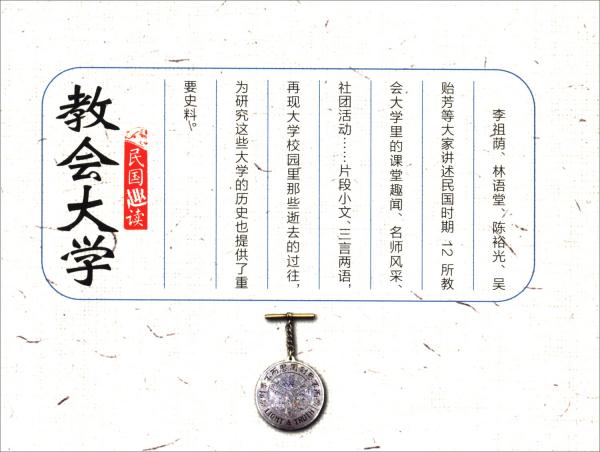 李祖荫、林语堂、陈裕光、吴
贻芳等大家讲述民国时期 12 所教
会大学里的课堂趣闻、名师风采、
社团活动……片段小文、三言两语，
再现大学校园里那些逝去的过往，
为研究这些大学的历史也提供了重
要史料。
民国趣读
教会大学
LIGHT & TRUTH